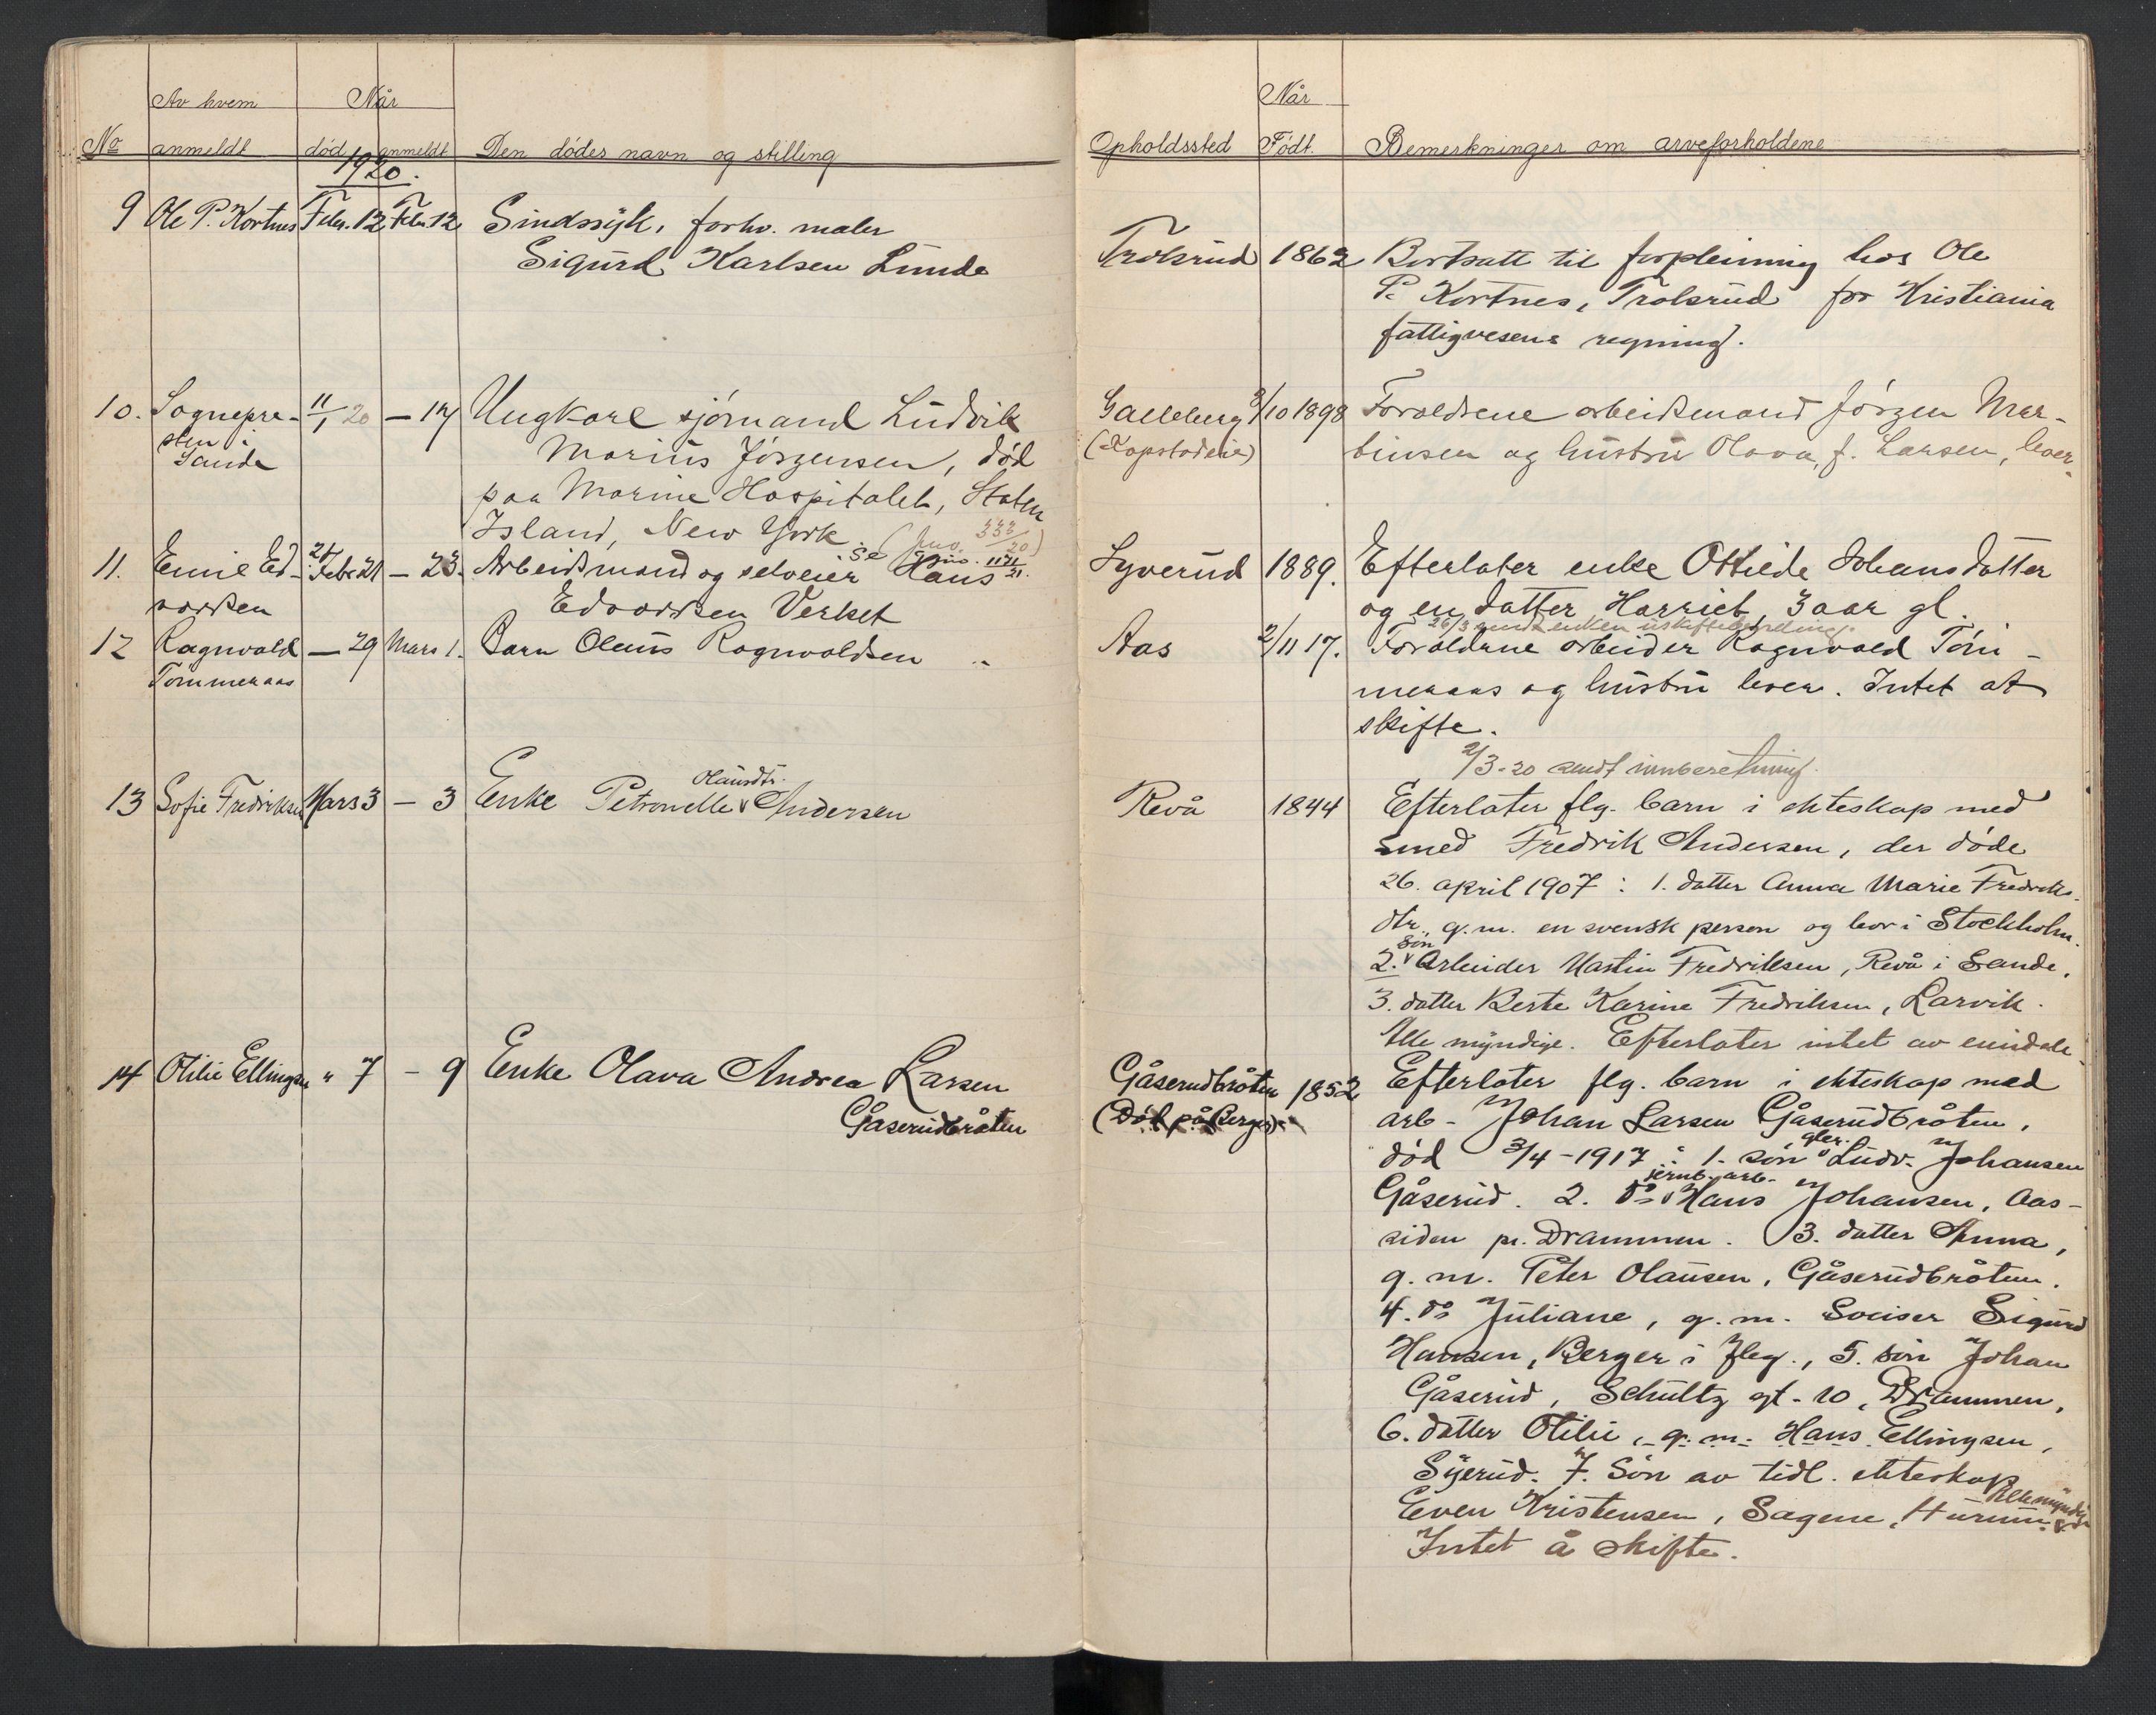 Av hvem Når
No anmeldt død anmeldt Den dødes navn og stilling
1920.
9 Ole P. Kortnes Febr. 12 Febr. 12 Sindssyk, forhv. maler
Sigurd Karlsen Lunde
10. Sognepre- 11/1 20 — 17 Ungkarl sjømand Ludvik
sten i
Sande
Marius Jörgensen, död
paa Marine Hospitalet, Staten
Island, New York. Se (jno. 333/20)
jno. 1171/21.
11. Emil Ed- Febr 21 — 23. Arbeidsmand og selveier Hans
vardsen
Edvardsen Verket
12 Ragnvald — 29 Mars 1. Barn Olaus Ragnvaldsen "
Tömmeraas
13 Sofie Fredriksen Mars 3 — 3 Enke Petronelle Olausdtr. Andersen
14 Otilie Ellingsen " 7 — 9 Enke Olava Andrea Larsen
Gåserudbråten
Når
Opholdssted Født. Bemerkninger om arveforholdene
Trolsrud 1862 Bortsatt til forpleining hos Ole
P. Kortnes, Trolsrud for Kristiania
fattigvesens regning.
Galleberg 3/10 1898 Forældrene arbeidsmand Jörgen Mar-
(Kopstadeie) tinsen og hustru Olava, f. Larsen, lever.
Lyverud 1889. Efterlater enke Ottilde Johansdatter
og en datter Harriet, 3 aar gl.
26/3 sendt enken uskiftebevilling.
Aas 2/11 17. Forældrene arbeider Ragnvald Töm-
meraas og hustru lever. Intet at
skifte.
2/3-20 sendt innberetning.
Revå 1844 Efterlater flg. barn i ekteskap med
smed Fredrik Andersen, der døde
26. april 1907: 1. datter Anna Marie Fredriks-
dtr., g.m. en svensk person og bor i Stockholm.
2. søn Arbeider Martin Fredriksen, Revå i Sande,
3. datter Berte Karine Fredriksen, Larvik.
Alle myndige. Efterlater intet av eiendele.
Gåserudbråten 1852 Efterlater flg. barn i ekteskap med
(Död på Berger) arb. Johan Larsen Gåserudbråten,
död 3/4-1917: 1. søn Ludv. Johansen
Gåserud. 2. do jernb.arb. Hans Johansen, Aas-
siden pr. Drammen. 3. datter Anna,
g.m. Peter Olausen, Gåserudbråten.
4. do Juliane, g.m. Sveiser Sigurd
Hansen, Berger i Jleg., 5. søn Johan
Gåserud, Schultz gt. 10, Drammen,
6. datter Otilie, g.m. Hans Ellingsen,
Syerud. 7. Søn av tidl. ekteskap
Even Kristensen, Sagene, Hurum. Alle myndige
Intet å skifte.